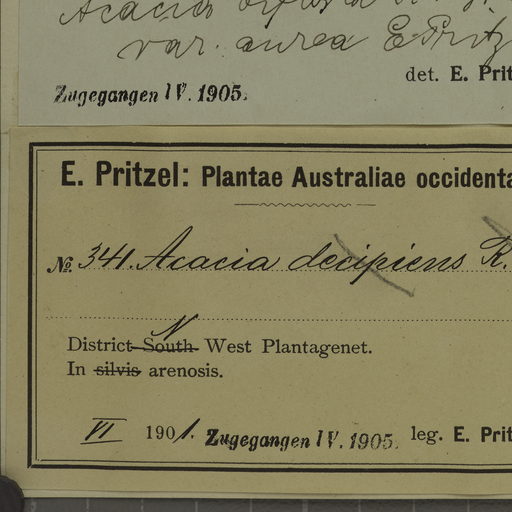 Acacia
var. aurea E. Pritz
det. E. Prit
Zugegangen IV. 1905.
E. Pritzel: Plantae Australiae occidenta
№ 341. Acacia decipiens R.
N
District South West Plantagenet.
In silvis arenosis.
VI 1901. Zugegangen IV. 1905. leg. E. Prit